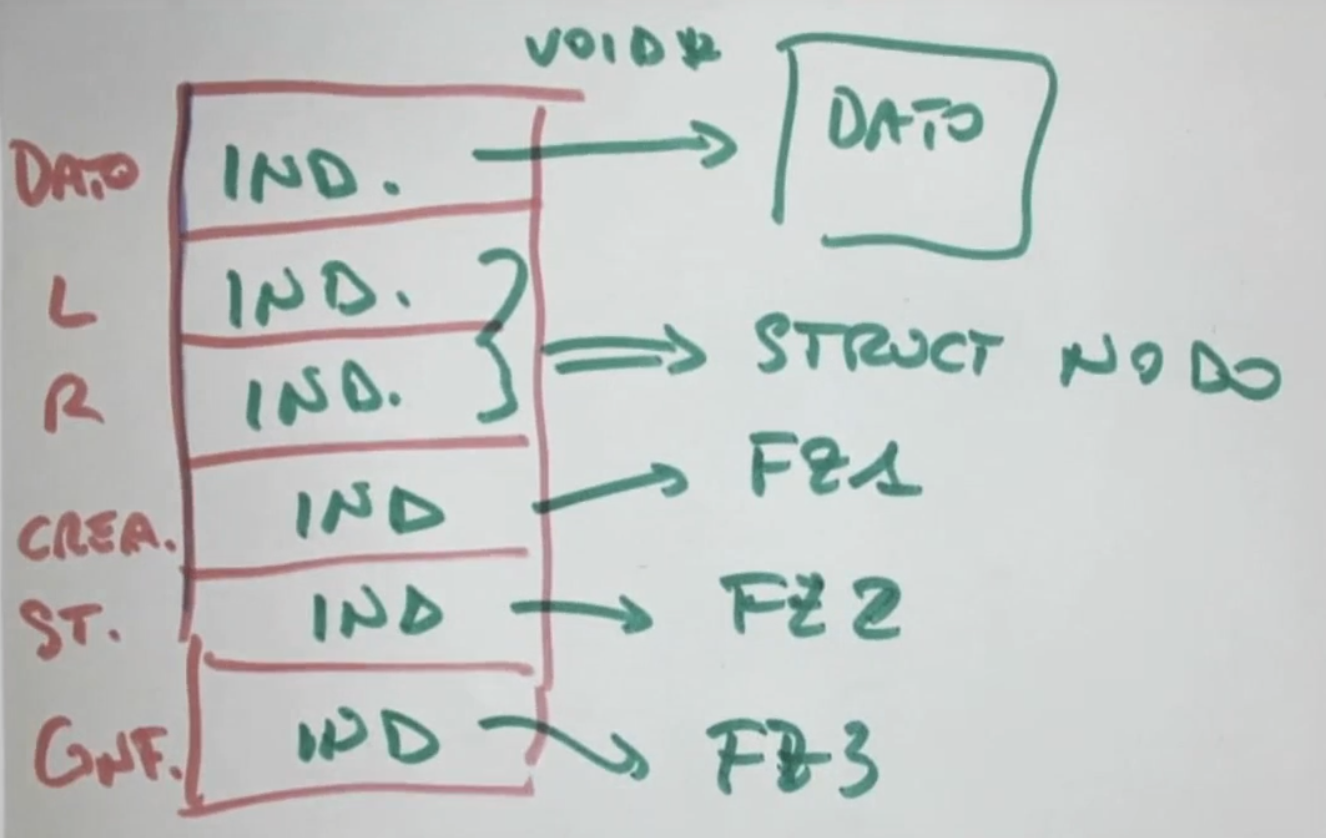 VOID*
DATO IND. DATO
L IND.
R IND. STRUCT NODO
CREA. IND FZ1
ST. IND FZ2
CONF. IND FZ3